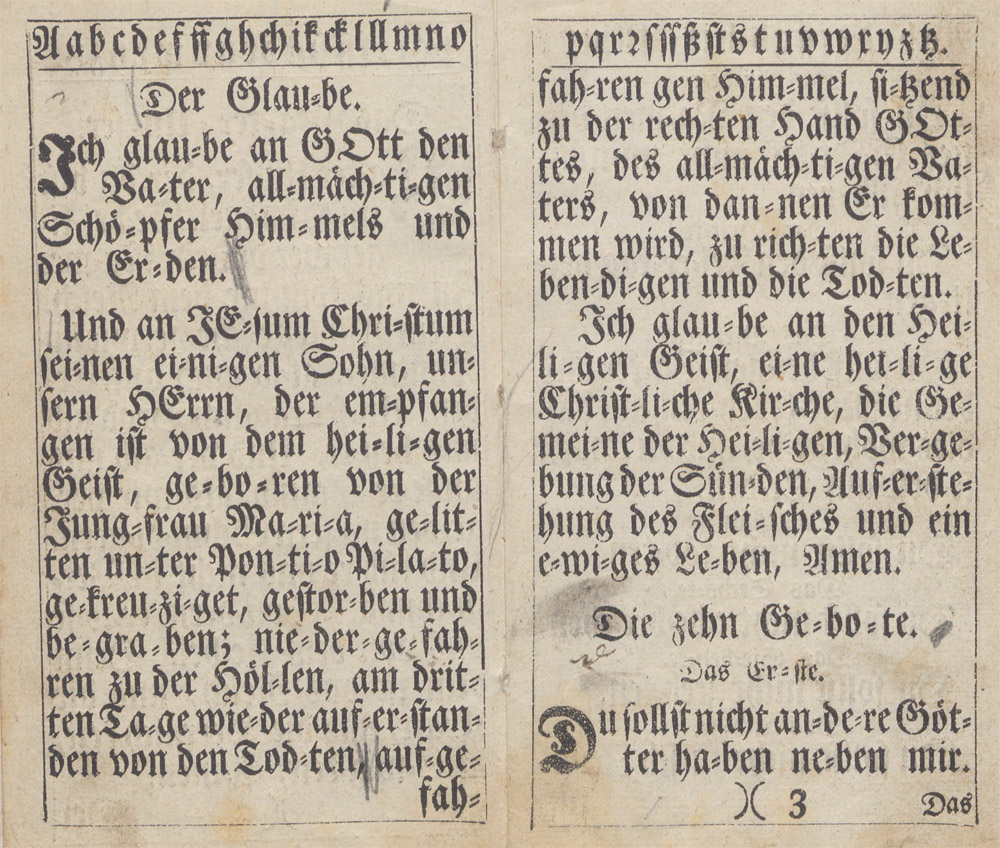 A a b c d e f ff g h ch i k ck l ll m n o
Der Glau⸗be.
Ich glau⸗be an GOtt den
Va⸗ter, all⸗mäch⸗ti⸗gen
Schö⸗pfer Him⸗mels und
der Er⸗den.
Und an JE⸗ſum Chri⸗ſtum
ſei⸗nen ei⸗ni⸗gen Sohn, un⸗
ſern HErrn, der em⸗pfan⸗
gen iſt von dem hei⸗li⸗gen
Geiſt, ge⸗bo⸗ren von der
Jung⸗frau Ma⸗ri⸗a, ge⸗lit⸗
ten un⸗ter Pon⸗ti⸗o Pi⸗la⸗to,
ge⸗kreu⸗zi⸗get, geſtor⸗ben und
be⸗gra⸗ben; nie⸗der⸗ge⸗fah⸗
ren zu der Höl⸗len, am drit⸗
ten Ta⸗ge wie⸗der auf⸗er⸗ſtan⸗
den von den Tod⸗ten, auf⸗ge⸗
fah⸗
p q r ꝛ ſ ſſ ß ſt s t u v w x y z tz.
fah⸗ren gen Him⸗mel, ſi⸗tzend
zu der rech⸗ten Hand GOt⸗
tes, des all⸗mäch⸗ti⸗gen Va⸗
ters, von dan⸗nen Er kom⸗
men wird, zu rich⸗ten die Le⸗
ben⸗di⸗gen und die Tod⸗ten.
Ich glau⸗be an den Hei⸗
li⸗gen Geiſt, ei⸗ne hei⸗li⸗ge
Chriſt⸗li⸗che Kir⸗che, die Ge⸗
mei⸗ne der Hei⸗li⸗gen, Ver⸗ge⸗
bung der Sün⸗den, Auf⸗er⸗ſte⸗
hung des Flei⸗ſches und ein
e⸗wi⸗ges Le⸗ben, Amen.
Die zehn Ge⸗bo⸗te.
Das Er⸗ſte.
Du ſollſt nicht an⸗de⸗re Göt⸗
ter ha⸗ben ne⸗ben mir.
)( 3 Das